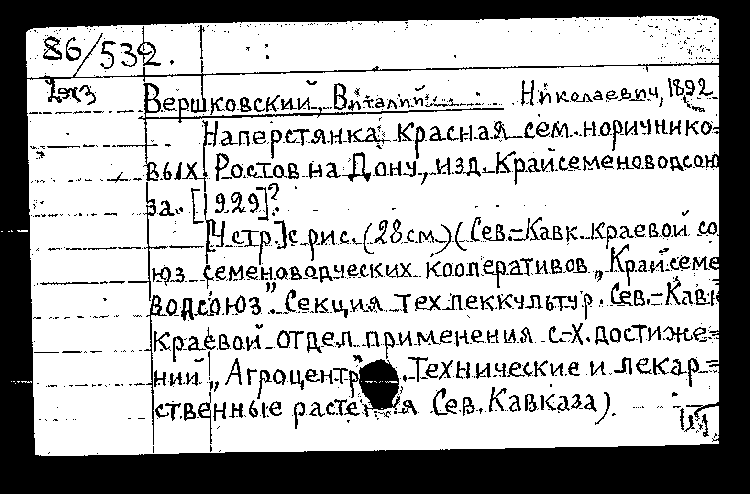 86/532.
2экз
Вершковский, Виталий Николаевич, 1892
Наперстянка красная сем. норичнико=
вых. Ростов на Дону, изд. Крайсеменоводсою
за. [1929]?
[4 стр.] с рис. (28 см) (Сев.=Кавк. краевой со
юз семеноводческих кооперативов „Крайсеме
водсоюз". Секция тех. леккультур. Сев.-Кавк
краевой отдел применения с-х. достиже=
ний „Агроцентр". Технические и лекар=
ственные растения Сев. Кавказа).